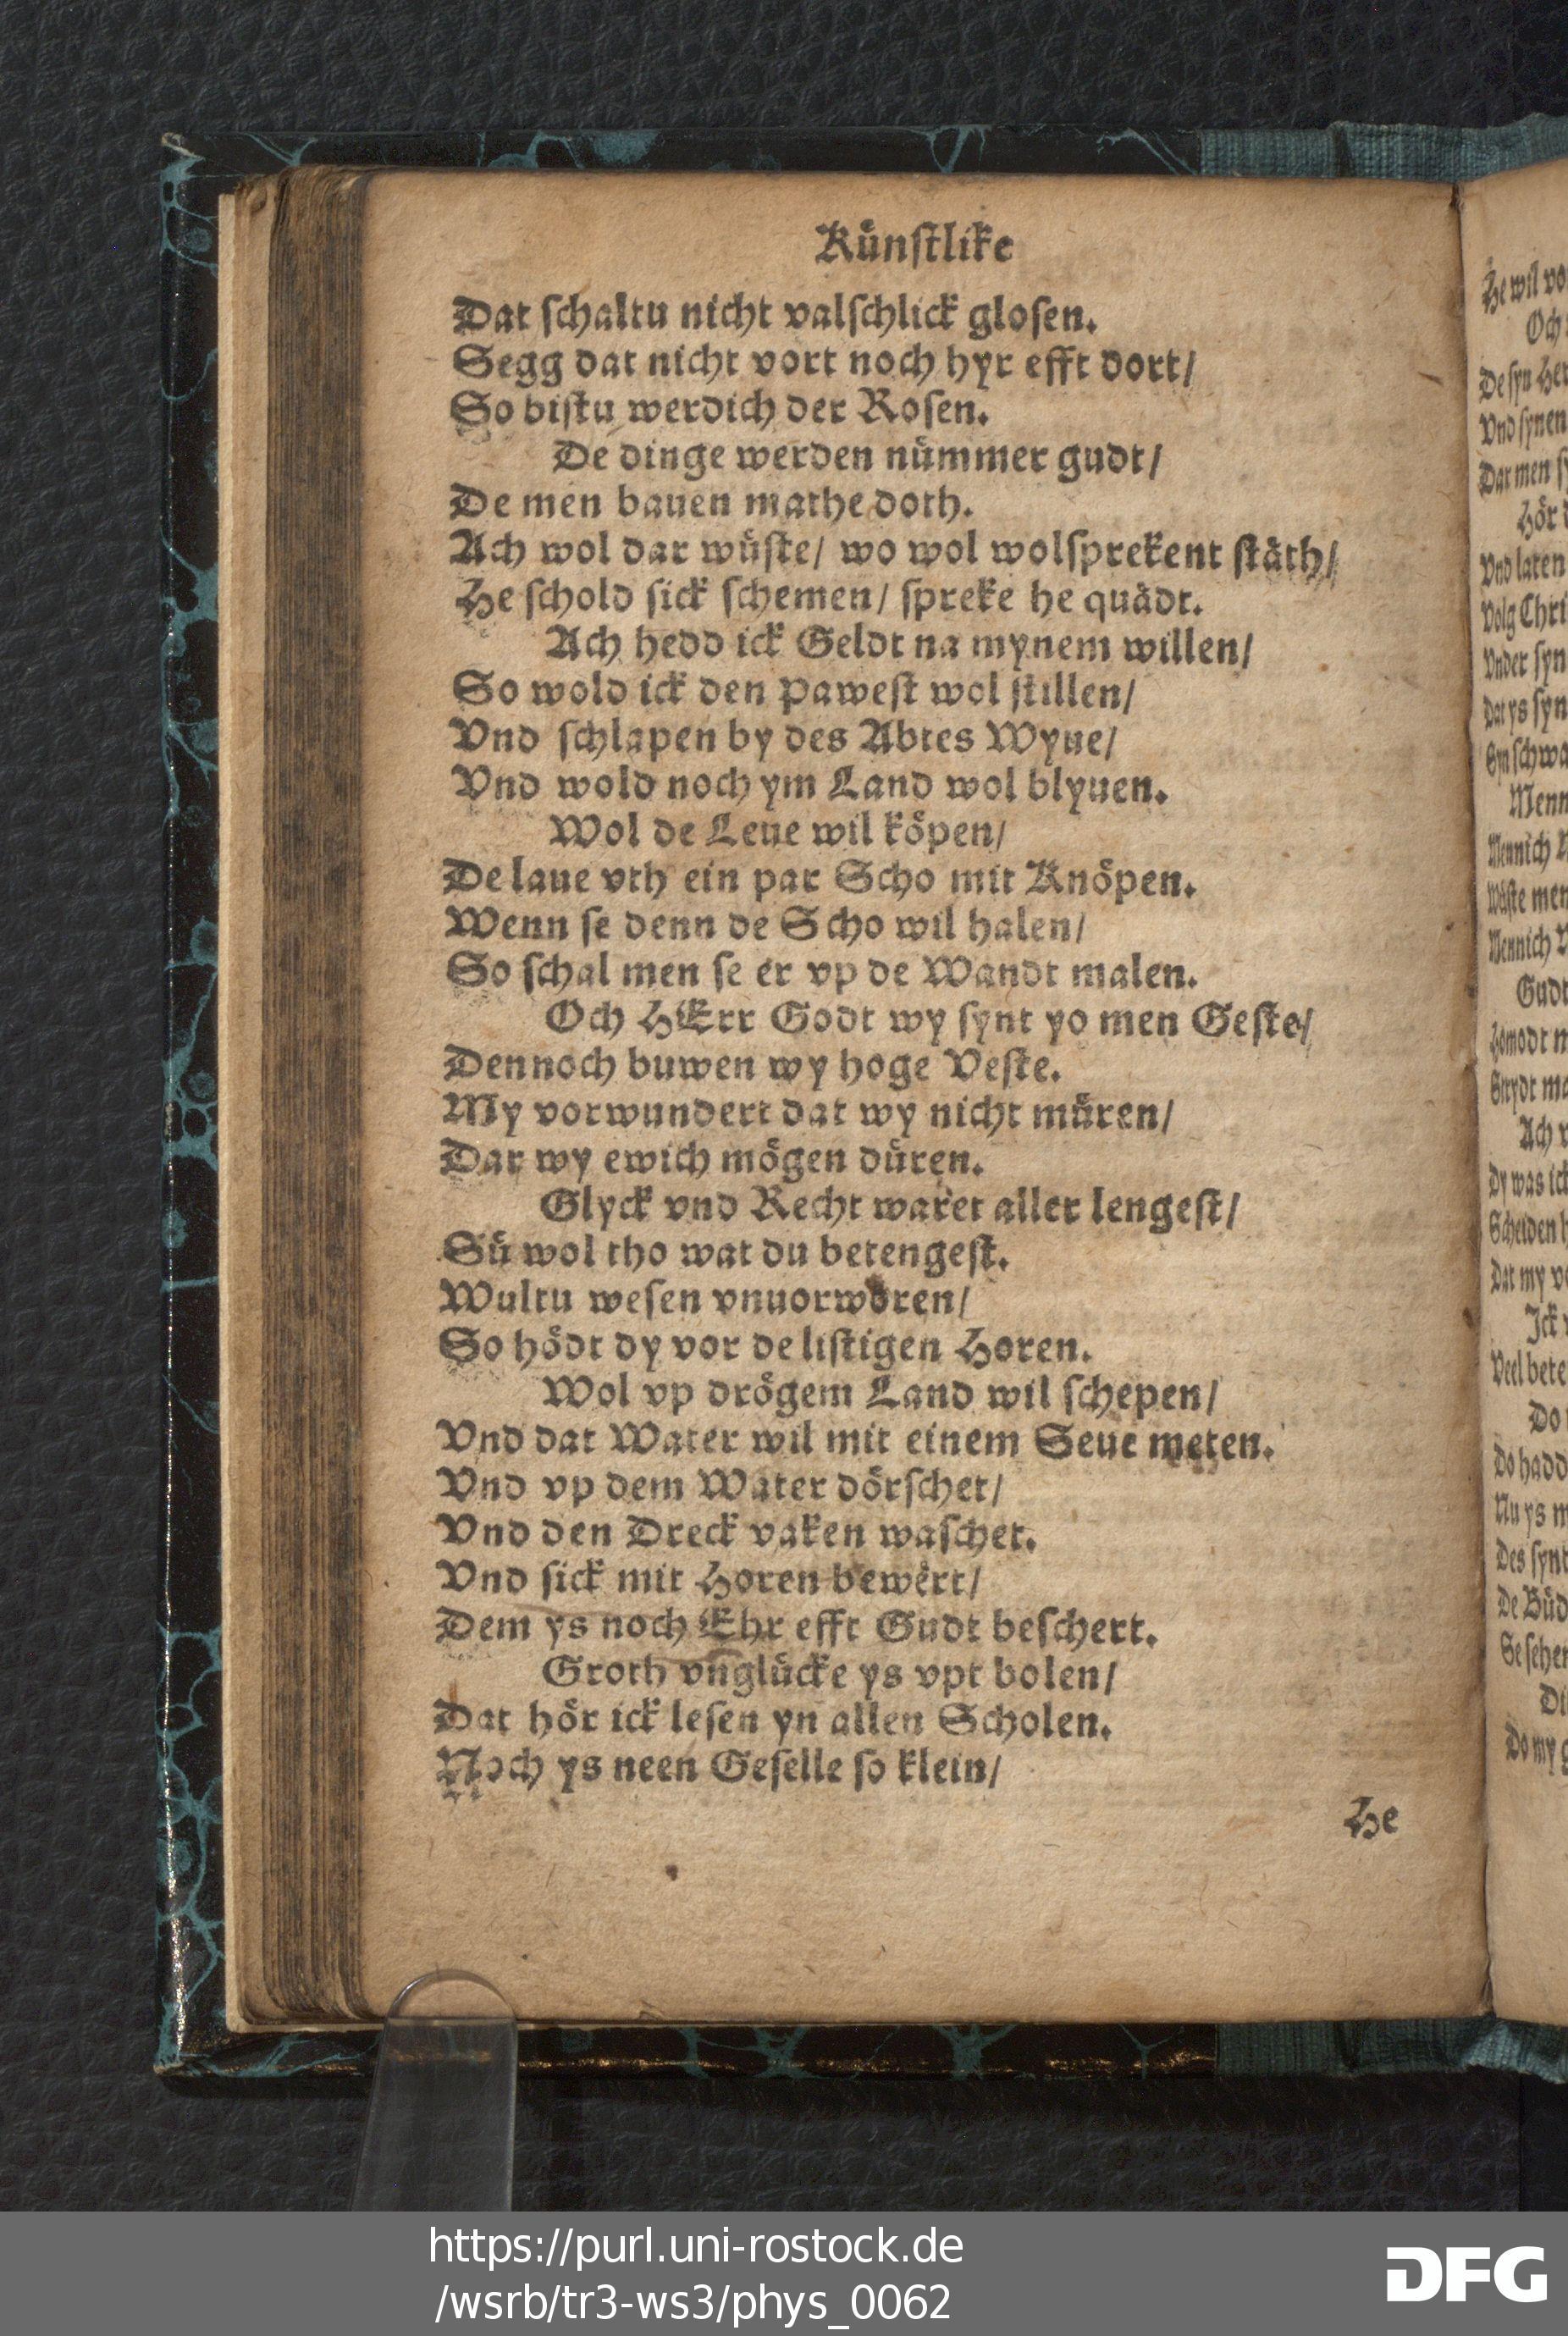 Künſtlike
Dat ſchaltu nicht valſchlick gloſen.
Segg dat nicht vort noch hyr efft dort/
So biſtu werdich der Roſen.
De dinge werden nümmer gudt/
De men bauen mathe doth.
Ach wol dar wüſte/ wo wol wolſprekent ſtäth/
He ſchold ſick ſchemen/ ſpreke he quädt.
Ach hedd ick Geldt na mynem willen/
So wold ick den Paweſt wol ſtillen/
Vnd ſchlapen by des Abtes Wyue/
Vnd wold noch ym Land wol blyuen.
Wol de Leue wil köpen/
De laue vth ein par Scho mit Knöpen.
Wenn ſe denn de Scho wil halen/
So ſchal men ſe er vp de Wandt malen.
Och HErr Godt wy ſynt yo men Geſte/
Dennoch buwen wy hoge Veſte.
My vorwundert dat wy nicht müren/
Dar wy ewich mögen düren.
Glyck vnd Recht waret aller lengeſt/
Sü wol tho wat du betengeſt.
Wultu weſen vnuorworen/
So hödt dy vor de liſtigen Horen.
Wol vp drögem Land wil ſchepen/
Vnd dat Water wil mit einem Seue meten.
Vnd vp dem Water dörſchet/
Vnd den Dreck vaken waſchet.
Vnd ſick mit Horen bewért/
Dem ys noch Ehr efft Gudt beſchert.
Groth vnglücke ys vpt bolen/
Dat hör ick leſen yn allen Scholen.
Noch ys neen Geſelle ſo klein/
He
He wil
Och
De ſyn
Vnd ſynen
Dar men
Hör
Vnd laten
Volg
Vnder ſyn
Dat ys ſyn
Menn
Mennich
Wüſte men
Mennich
Gudt
Homodt
Strydt
Ach
Dy was ick
Scheiden
Dat my
Jck
Veel bete
Do
Do hadd
Nu ys
Des ſynt
De
Se ſehen
Do my
https://purl.uni-rostock.de
/wsrb/tr3-ws3/phys_0062
DFG